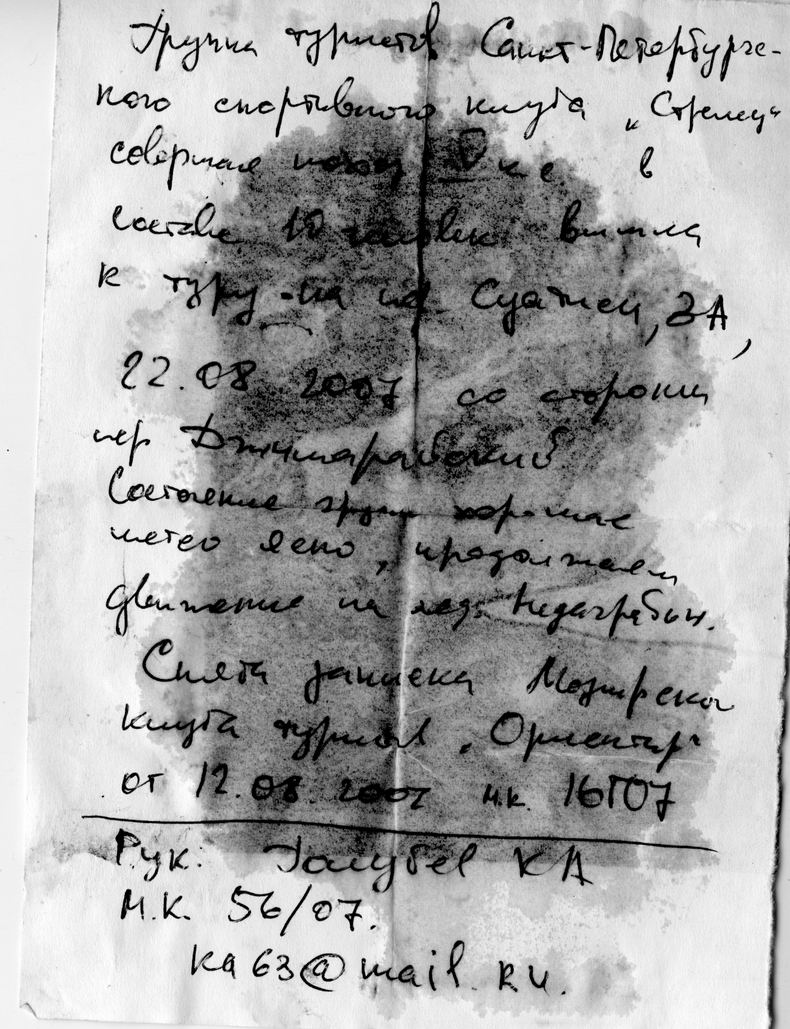 Группа туристов Санкт-Петербургс-
кого спортивного клуба „Стрелец“
совершая поход V кс в
составе 10 человек вышла
к туру на пер Суатиси, 3А,
22.08 2007 со стороны
пер Джимарайский
Состояние группы хорошее
метео ясно, продолжаем
движение на лед.
Снята записка Мозырского
клуба туристов „Ориентир“
от 12.08 2007 м.к. 16Т07
Рук. Голубев КА
М.К. 56/07.
ka63@mail.ru.